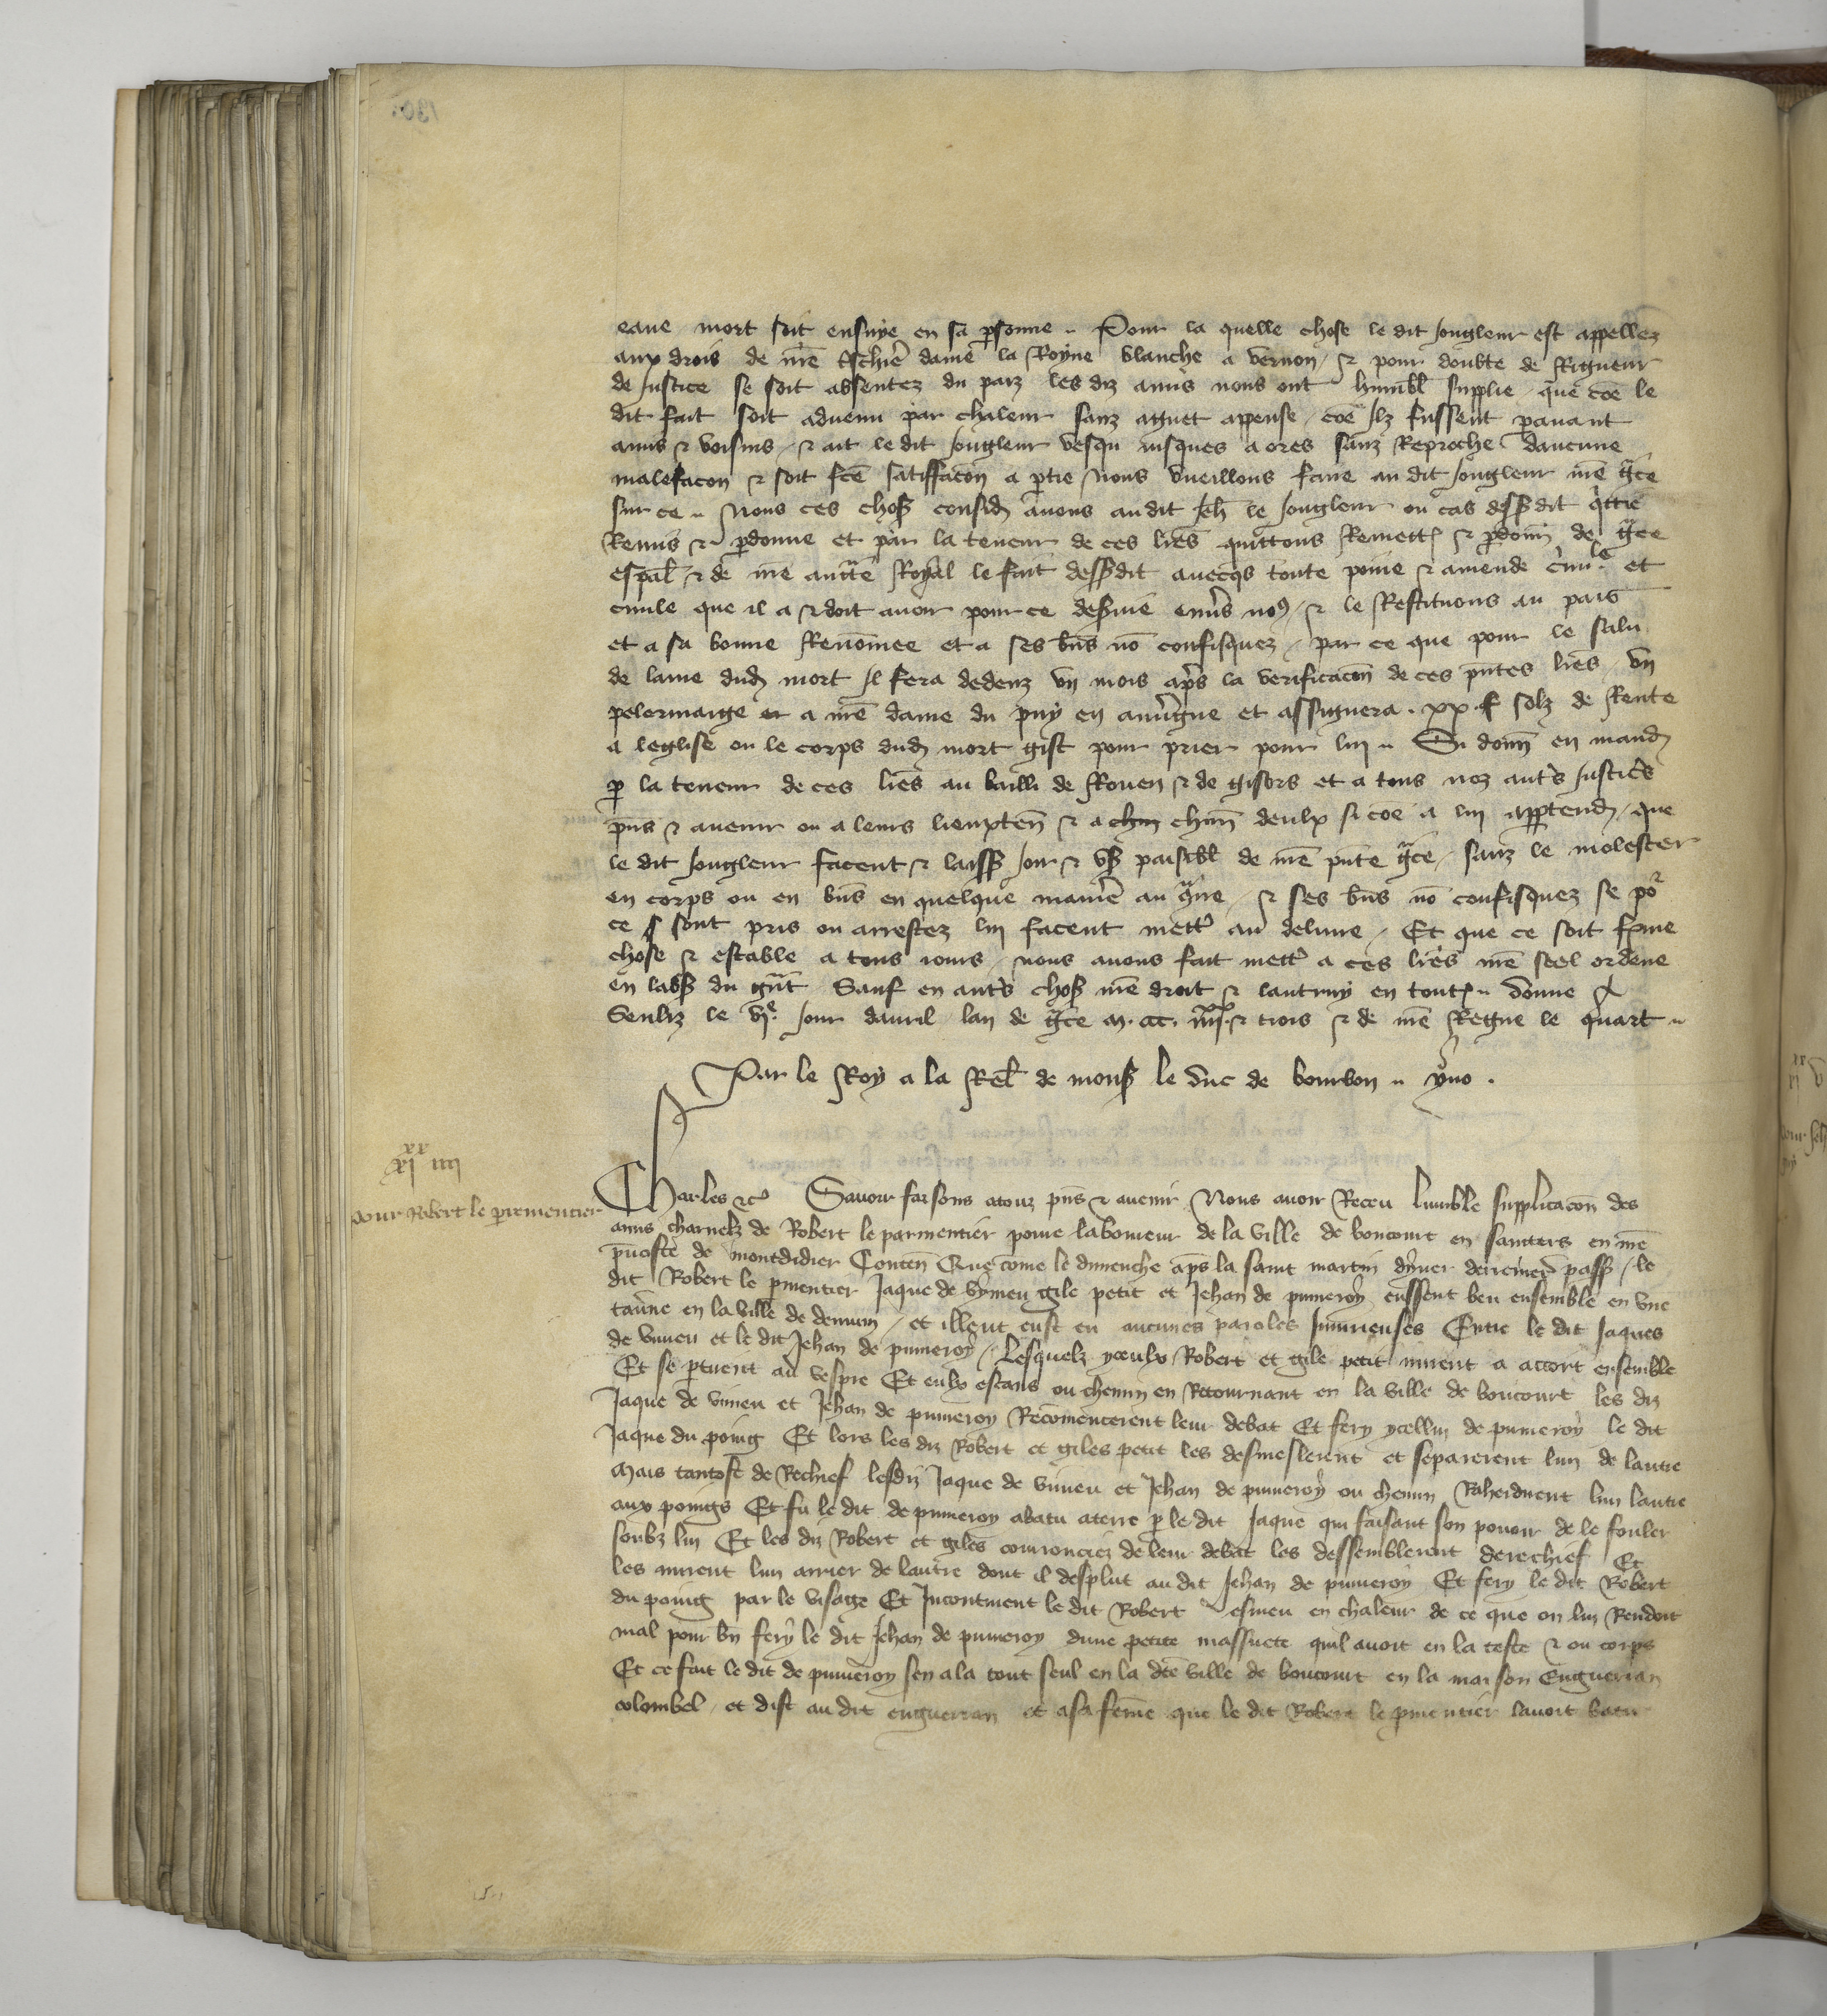 eaue mort soit ensuye en sa p̄sonne. Pour la quelle chose le dit Jougleur est appellez
aux drois de nr̄e tsch̄iere dame la Royne blanche a vernon / ⁊ pour doubte de Rigueur
de justice se soit absentez du paiz les diz amis nous ont humbl̄ supplie que cōe le
dit fait soit aduenu par chaleur sanz aguet apense / cōe Ilz fussent p̄auant
amis ⁊ voisins / ⁊ ait le dit Jougleur vesqu iusques a ores sanz Reproche daucune
malefacon ⁊ soit fc̄e satiffacōn a p̄tie Nous vueillons faire au dit Jougleur nr̄e gr̄ce
sur ce. Nous ces chos̄ consid̄ auons au dit Jeh̄ le Jougleur ou cas dess̄dit quittie
Remis ⁊ p̄donne et par la teneur de ces lr̄es quittons Remett̄ ⁊ p̄donn̄ de gr̄ce
esp̄al ⁊ de nr̄e auct̄te Royal le fait dess̄dit auecq̄s toute peine ⁊ amende c̄im.le et
ciuile que il a ⁊ doit auoir pour ce desseruie enūs no⁹ / ⁊ le Restituons au pais
et a sa bonne Renōmee et a ses bn̄s nō confisquez / par ce que pour le salu
de lame dud̄ mort Il fera dedenz vn mois ap̄s la verificacōn de ces p̄ntes lr̄es vn
pelerinaige a nr̄e dame du puy en auūgne et assignera . xx . solz de Rente
a leglise ou le corps dud̄ mort gist pour prier pour lui. Si donn̄ en mand̄
p̄ la teneur de ces lr̄es au bailli de Rouen ⁊ de gisors et a tous noz autr̄s justic̄s
p̄ns ⁊ auenir ou a leurs lieuxten̄ ⁊ a chun chūn deulx si cōe a lui app̄tend̄ / que
le dit Jougleur facent ⁊ laiss̄ Joir ⁊ vs̄ paisibl̄ de nr̄e p̄nte gr̄ce / sanz le molester
en corps ou en bn̄s en quelque manīe au 9tr̄re / ⁊ ses bn̄s nō confisquez se po2
ce sont pris ou arrestez lui facent mettr̄ au deliure / Et que ce soit f̄me
chose ⁊ estable a tous iours / nous auons fait mettr̄ a ces lr̄es nr̄e seel ordene
en labs̄ du gr̄nt Sauf en autr̄s chos̄ nr̄e droit ⁊ lautruy en tout̄. Donne a
Senliz le vj.e Jour dauril lan de gr̄ce M.CCC. iiijxx ⁊ trois ⁊ de nr̄e Regne le quart
Par le Roy a la Rel̄ de mons̄ le duc de bourbon. yuo.
xixx iiii
pour Robert le parmentier
Charles ⁊c̄ Sauoir faisons atouz p̄ns ⁊ auenir Nous auoir Receu lumble supplicacōn des
amis charnelz de Robert le parmentier poure laboureur de la ville de boucourt en santters en nr̄e
p̄uoste de montdidier Conten̄ Que cōme le dimenche ap̄s la saint martin dyuer derrenier pass̄ / le
dit Robert le p̄mentier Jaque de vymeu gile petit et Jehan de pumeroy eussent beu ensemble en vne
tau̇ne en la ville de demuin / et illeut eust eu aucunes paroles Iniurieuses Entre le dit Jaques
de vimeu et le dit Jehan de pumeroy / Lesquelz yceulx Robert et gile petit mirent a accort ensemble
Et se p̄tirent au vespre Et eulx estans ou chemin en Retournant en la ville de boucourt les diz
Jaque de vimeu et Jehan de pumeroy Recōmencerent leur debat Et fery ycellui de pumeroy le dit
Jaque du poing Et lors les diz Robert et giles petit les desmeslerent et separerent lun de lautre
Mais tantost de Rechief lesdiz Jaque de vimeu et Jehan de pumeroy ou chemin Raherdirent lun lautre
aux poings Et fu le dit de pumeroy abatu aterre p̄ le dit Jaque qui faisant son pouoir de le fouler
soubz lui Et les diz Robert et giles courrouciez de leur debat les dessemblerent derechief Et
les mirent lun arrier de lautre dont il desplut au dit Jehan de pumeroy Et fery le dit Robert
du poing par le visage Et Incontinent le dit Robert esmeu en chaleur de ce que on lui Rendoit
mal pour bn̄ fery le dit Jehan de pumeroy dune petite massuete quil auoit en la teste ⁊ ou corps
Et ce fait le dit de pumeroy sen ala tout seul en la dc̄e ville de boucourt en la maison Enguerran
colombel / et dist au dit enguerran et asa fēme que le dit Robert le p̄mentier lauoit batu